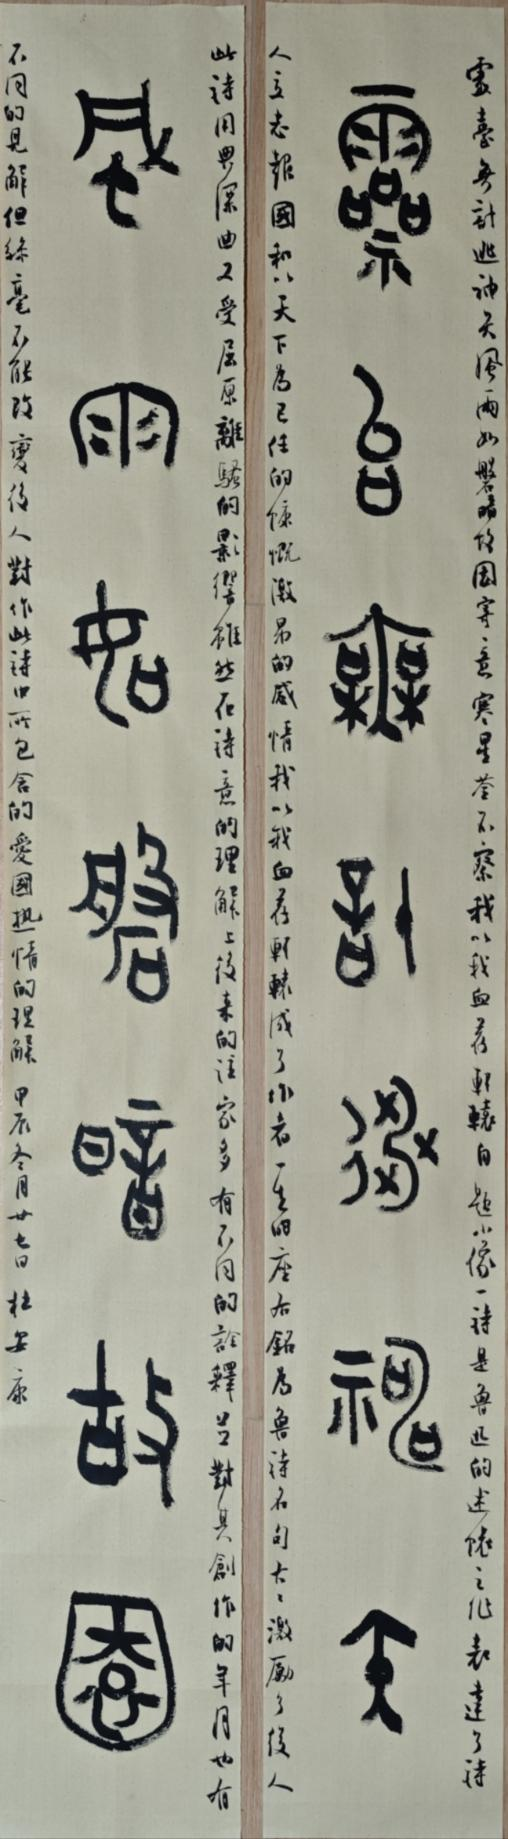 靈台無計逃神矢
靈臺無計逃神矢風雨如磐暗故園寄意寒星荃不察我以我血荐軒轅自題小像一詩是魯迅的述懷之作表達了詩
人立志報國和以天下為己任的慷慨激昂的感情我以我血荐軒轅成了作者一生的座右銘為魯詩名句大大激勵了後人
風雨如磐暗故園
此詩用典深曲又受屈原離騷的影響雖然在詩意的理解上後來的注家多有不同的詮釋並對其創作的年月也有
不同的見解但絲毫不能改變後人對作此詩中所包含的愛國熱情的理解 甲辰冬月廿七日 杜安康